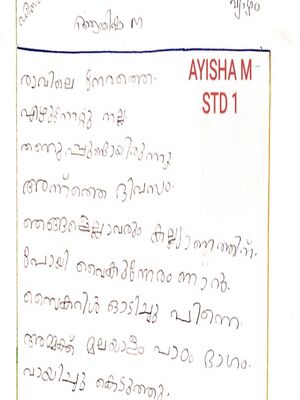 വ്യാഴം
ആയിഷാ M
AYISHA M
STD 1
രാവിലെ നേരത്തെ.
എഴുന്നേറ്റു നല്ല
തണുപ്പുണ്ടായിരുന്നു
അന്നത്തെ ദിവസം.
ഞങ്ങളെല്ലാവരും കല്ല്യാണത്തിന്.
പോയി വൈകുന്നേരം ഞാൻ.
സൈക്കിൾ ഓടിച്ചു പിന്നെ.
അമ്മക്ക് മലയാളം പാഠം ഭാഗം.
വായിച്ചു കൊടുത്തു.